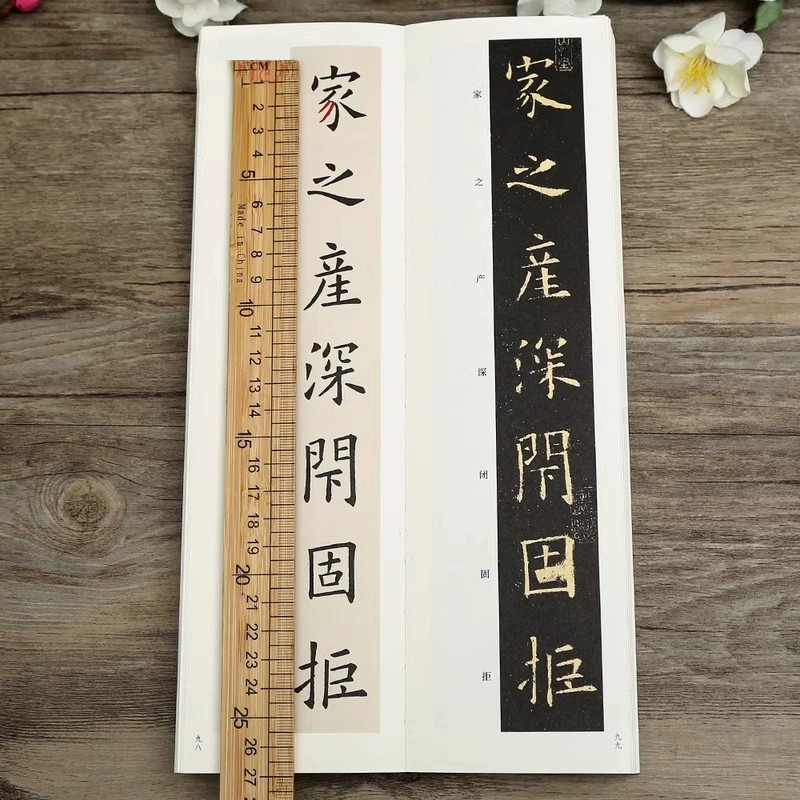 CM
1
2
3
4
5
6
7
8
9
10
11
12
13
14
15
16
17
18
19
20
21
22
23
24
25
26
27
Made in China
家之産深閇固拒
九八
家之产深闭固拒
家之産深閇固拒
九九